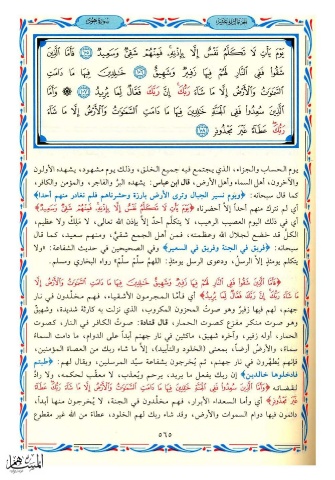 سورة هود
يَوْمَ يَأْتِ لَا تَكَلَّمُ نَفْسٌ إِلَّا بِإِذْنِهِ فَمِنْهُمْ شَقِيٌّ وَسَعِيدٌ ﴿١٠٥﴾ فَأَمَّا الَّذِينَ
شَقُوا فَفِي النَّارِ لَهُمْ فِيهَا زَفِيرٌ وَشَهِيقٌ ﴿١٠٦﴾ خَالِدِينَ فِيهَا مَا دَامَتِ
السَّمَوَاتُ وَالْأَرْضُ إِلَّا مَا شَاءَ رَبُّكَ إِنَّ رَبَّكَ فَعَّالٌ لِمَا يُرِيدُ ﴿١٠٧﴾ وَأَمَّا
الَّذِينَ سُعِدُوا فَفِي الْجَنَّةِ خَالِدِينَ فِيهَا مَا دَامَتِ السَّمَوَاتُ وَالْأَرْضُ إِلَّا مَا شَاءَ
رَبُّكَ عَطَاءً غَيْرَ مَجْذُوذٍ ﴿١٠٨﴾
يوم الحساب والجزاء، الذي يجتمع فيه جميع الخلق، وذلك يوم مشهود، يشهده الأولون
والآخرون، أهل السماء وأهل الأرض، قال ابن عباس: يشهده البرّ والفاجر، والمؤمن والكافر،
كما قال سبحانه: ﴿ويوم نسير الجبال وترى الأرض بارزة وحشرناهم فلم نغادر منهم أحداً﴾
أي لم نترك منهم أحداً إلاّ أحضرناه ﴿يَوْمَ يَأْتِ لَا تَكَلَّمُ نَفْسٌ إِلَّا بِإِذْنِهِ فَمِنْهُمْ شَقِيٌّ وَسَعِيدٌ﴾
أي في ذلك اليوم العصيب الرهيب، لا يتكلم أحدٌ إلا بإذن الله تعالى، لا ملك ولا عظيم،
الكلّ قد خضع لجلال الله وعظمته، فمن أهل الجمع شقيٌّ، ومنهم سعيد، كما قال
سبحانه: ﴿فريق في الجنة وفريق في السعير﴾ وفي الصحيحين في حديث الشفاعة: «ولا
يتكلم يومئذٍ إلا الرسل، ودعوى الرسل يومئذٍ: اللهمّ سلّم سلّم» رواه البخاري ومسلم.
﴿فَأَمَّا الَّذِينَ شَقُوا فَفِي النَّارِ لَهُمْ فِيهَا زَفِيرٌ وَشَهِيقٌ خَالِدِينَ فِيهَا مَا دَامَتِ السَّمَوَاتُ وَالْأَرْضُ إِلَّا
مَا شَاءَ رَبُّكَ إِنَّ رَبَّكَ فَعَّالٌ لِمَا يُرِيدُ﴾ أي فأمّا المجرمون الأشقياء، فهم مخلَّدون في نار
جهنم، لهم فيها زفيرٌ وهو صوت المحزون المكروب، الذي نزلت به كارثة شديدة، وشهيقٌ
وهو صوت منكر مفزع كصوت الحمار، قال قتادة: صوتُ الكافر في النار، كصوت
الحمار، أوله زفير، وآخره شهيق، ماكثين في نار جهنم أبداً على الدوام، ما دامت السماء
سماءً، والأرضُ أرضاً، بمعنى (الخلود والتأبيد)، إلاّ ما شاء ربك من العصاة المؤمنين،
فإنهم يطهّرون في نار جهنم، ثم يُخرجون بشفاعة سيّد المرسلين، ويقال لهم: ﴿طبتم
فادخلوها خالدين﴾ إن ربك يفعل ما يريد، يرحم ويعذّب، لا معقّب لحكمه، ولا رادّ
لقضائه ﴿وَأَمَّا الَّذِينَ سُعِدُوا فَفِي الْجَنَّةِ خَالِدِينَ فِيهَا مَا دَامَتِ السَّمَوَاتُ وَالْأَرْضُ إِلَّا مَا شَاءَ رَبُّكَ عَطَاءً
غَيْرَ مَجْذُوذٍ﴾ أي وأما السعداء الأبرار، فهم مخلّدون في الجنة، لا يُخرجون منها أبداً،
دائمون فيها دوام السموات والأرض، وقد شاء ربك لهم الخلود، عطاءً من الله غير مقطوع
٥٦٥